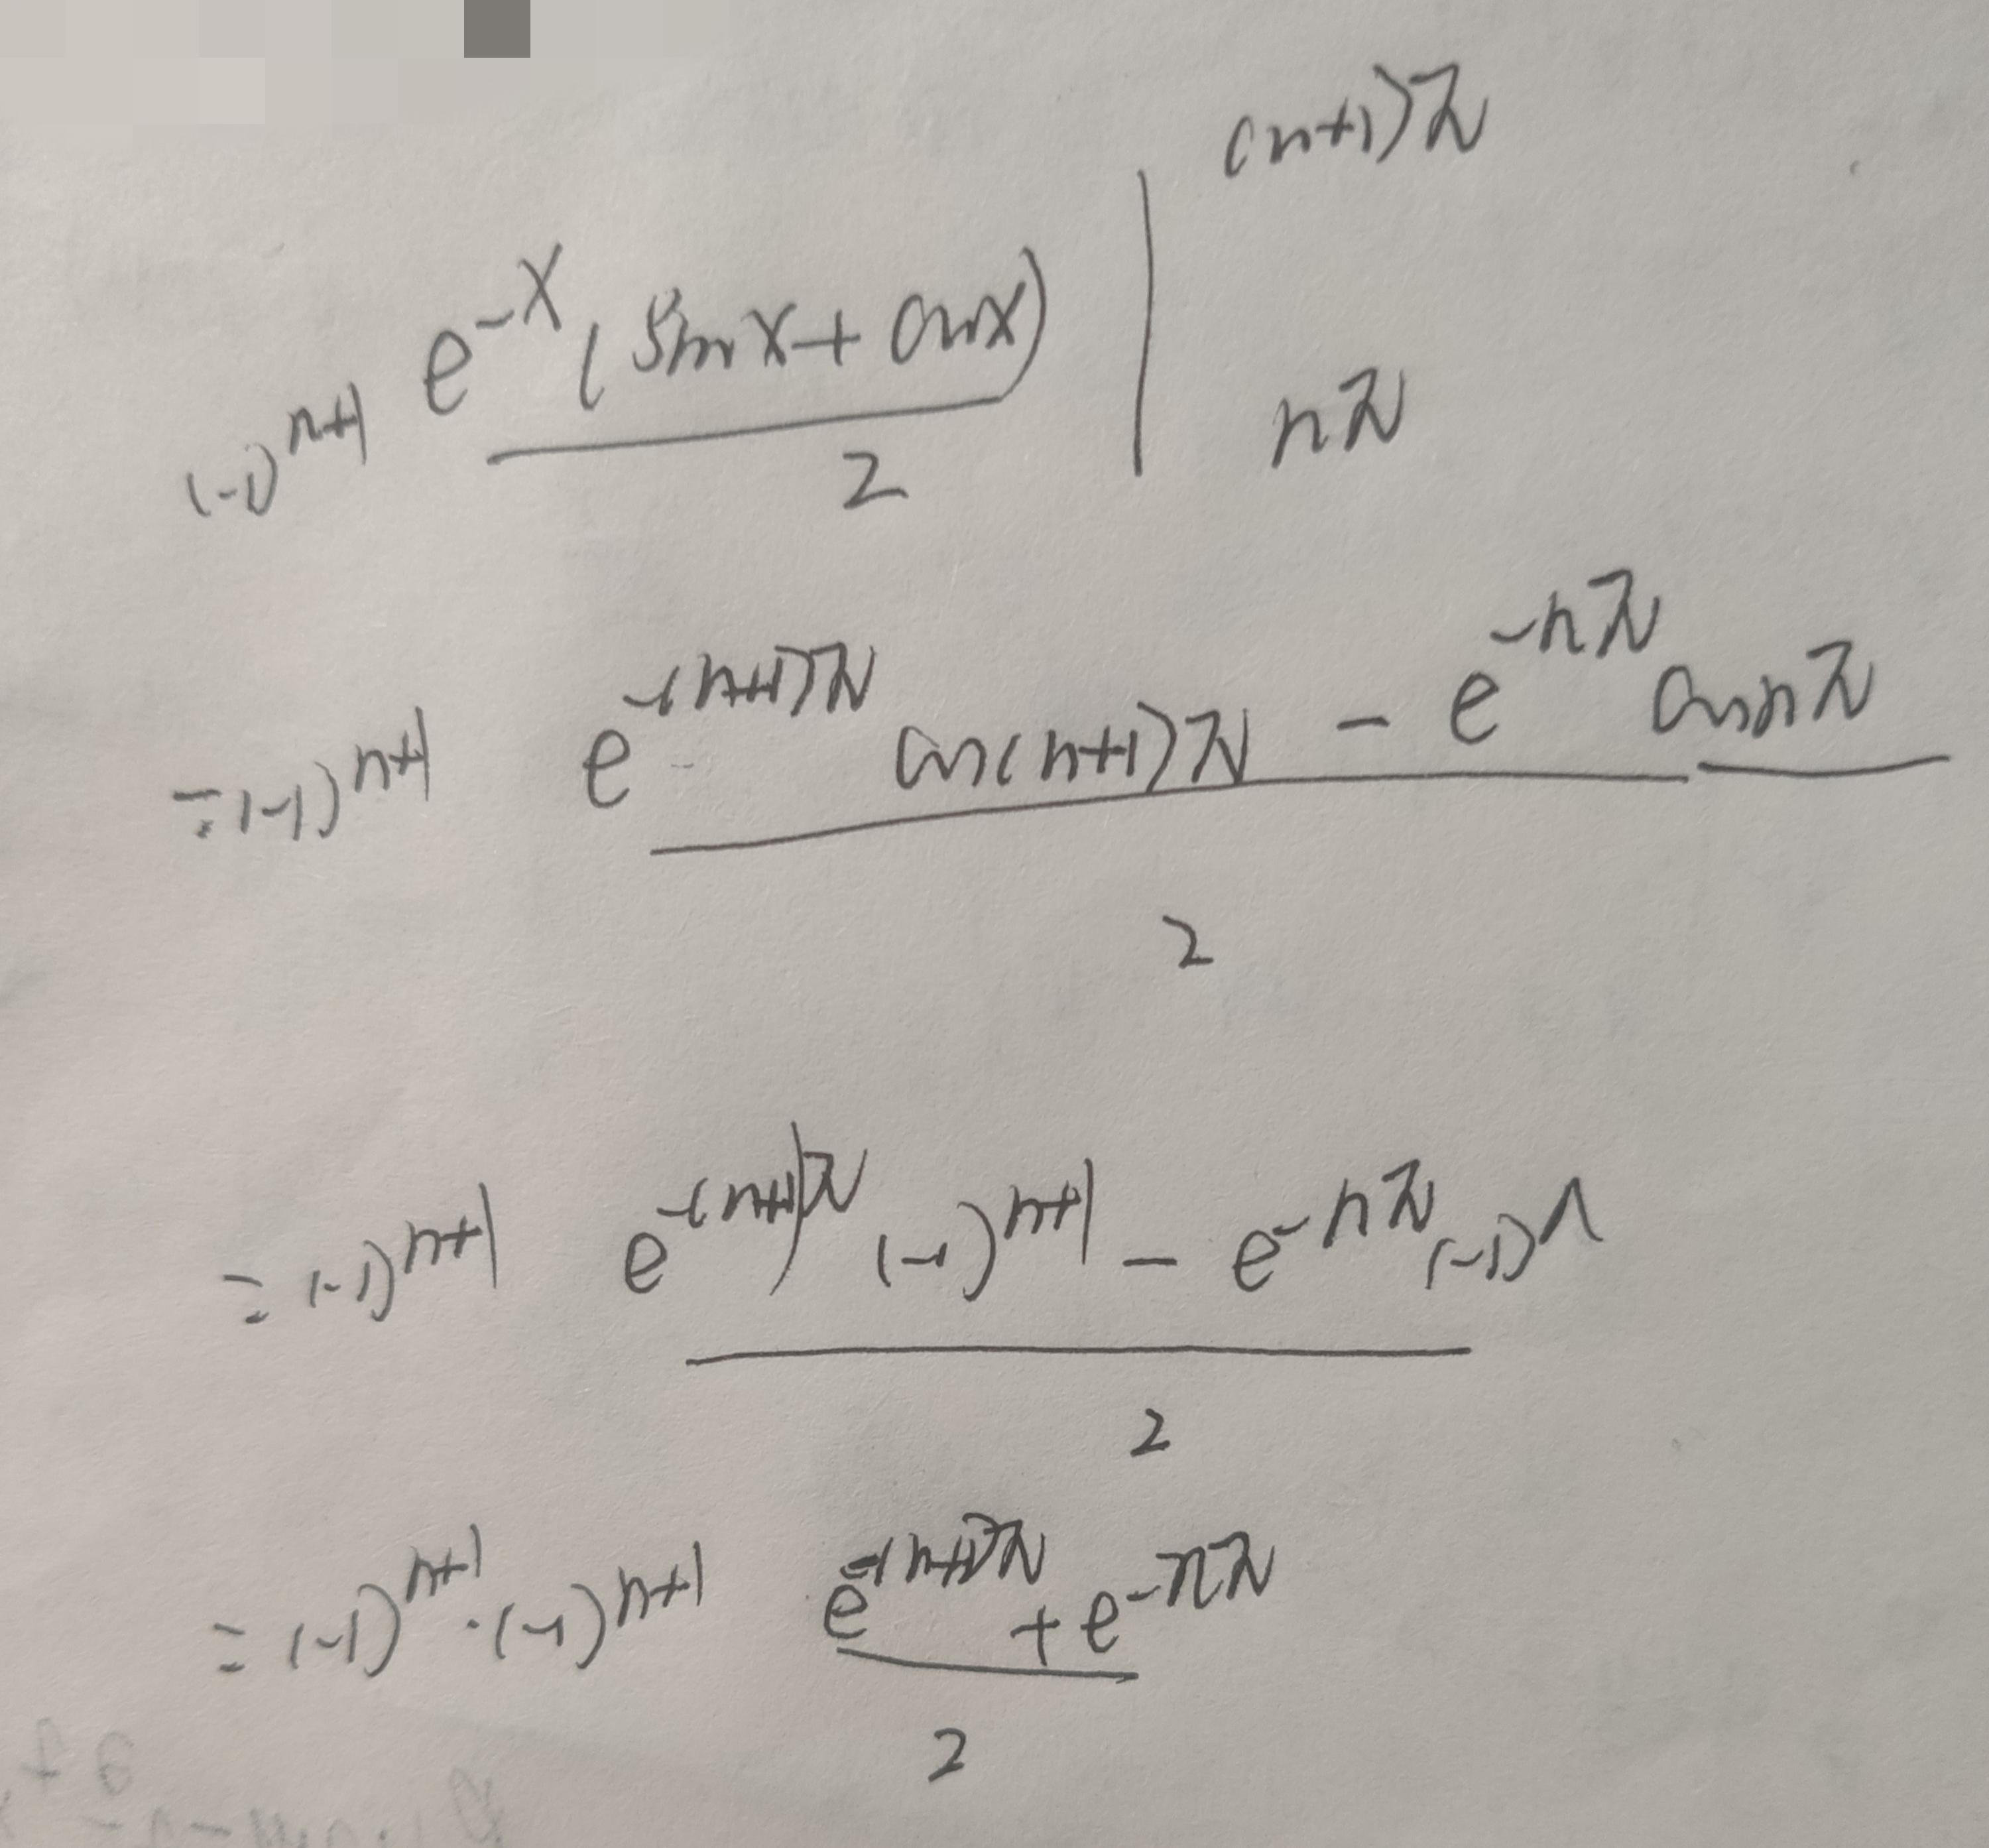 (-1)^{n+1} \frac{e^{-x}(sinx+cosx)}{2} |_{nπ}^{(n+1)π}
=(-1)^{n+1} \frac{e^{-(n+1)π}cos(n+1)π - e^{-nπ}cosnπ}{2}
=(-1)^{n+1} \frac{e^{-(n+1)π}(-1)^{n+1} - e^{-nπ}(-1)^n}{2}
=(-1)^{n+1}·(-1)^{n+1} \frac{e^{-(n+1)π}+e^{-nπ}}{2}